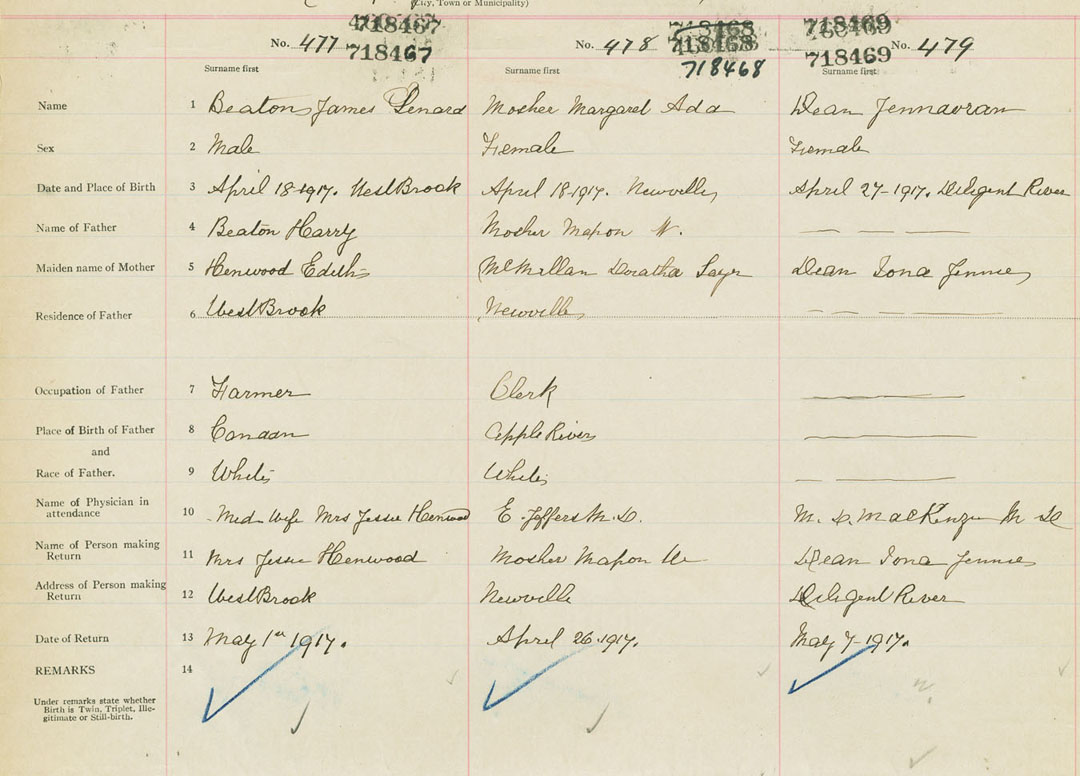 (City, Town or Municipality)
718467
No. 477 718467
718468
No. 478 718468
718468
718469
718469 No. 479
Surname first Surname first Surname first
Name 1 Beaton James Lenard Mosher Margaret Ada Dean Jennaoran
Sex 2 Male Female Female
Date and Place of Birth 3 April 18-1917. West Brook April 18-1917. Newville April 27-1917. Diligent River
Name of Father 4 Beaton Harry Mosher Mapon W. — — —
Maiden name of Mother 5 Henwood Edith McMillan Doratha Dean Iona Jennie
Residence of Father 6 West Brook Newville — — —
Occupation of Father 7 Farmer Clerk ———
Place of Birth of Father 8 Canaan Apple River ———
and
Race of Father. 9 White White — — —
Name of Physician in
attendance 10 Mid Wife Mrs Jessie Henwood E. Jeffers M.D. M. D. MacKenzie M D
Name of Person making
Return 11 Mrs Jessie Henwood Mosher Mapon W Dean Iona Jennie
Address of Person making
Return 12 West Brook Newville Diligent River
Date of Return 13 May 1st 1917. April 26-1917. May 7-1917.
REMARKS 14
Under remarks state whether
Birth is Twin, Triplet, Ille-
gitimate or Still-birth.